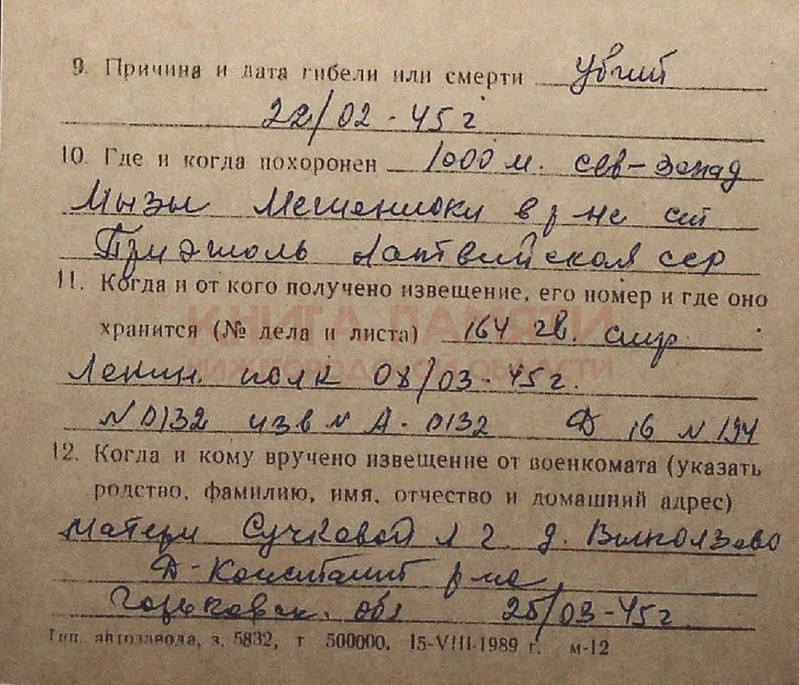 9. Причина и дата гибели или смерти убит
22/02-45г
10. Где и когда похоронен 1000 м. сев-запад
Мызы в р-не ст
Латвийская сср
11. Когда и от кого получено извещение, его номер и где оно
хранится (№ дела и листа) 164 гв. стр
КНИГА ПАМЯТИ
НИЖЕГОРОДСКОЙ ОБЛАСТИ
Ленин. полк 08/03-45г.
N 0132 изв N А-0132 Д 16 N 194
12. Когда и кому вручено извещение от военкомата (указать
родство, фамилию, имя, отчество и домашний адрес)
Матери Сучковой Л Г д.
Д-Констант р-на
Горьковск. обл 25/03-45г
Тип. автозавода, з. 5832, т 500000. 15-VIII-1989 г. м-12